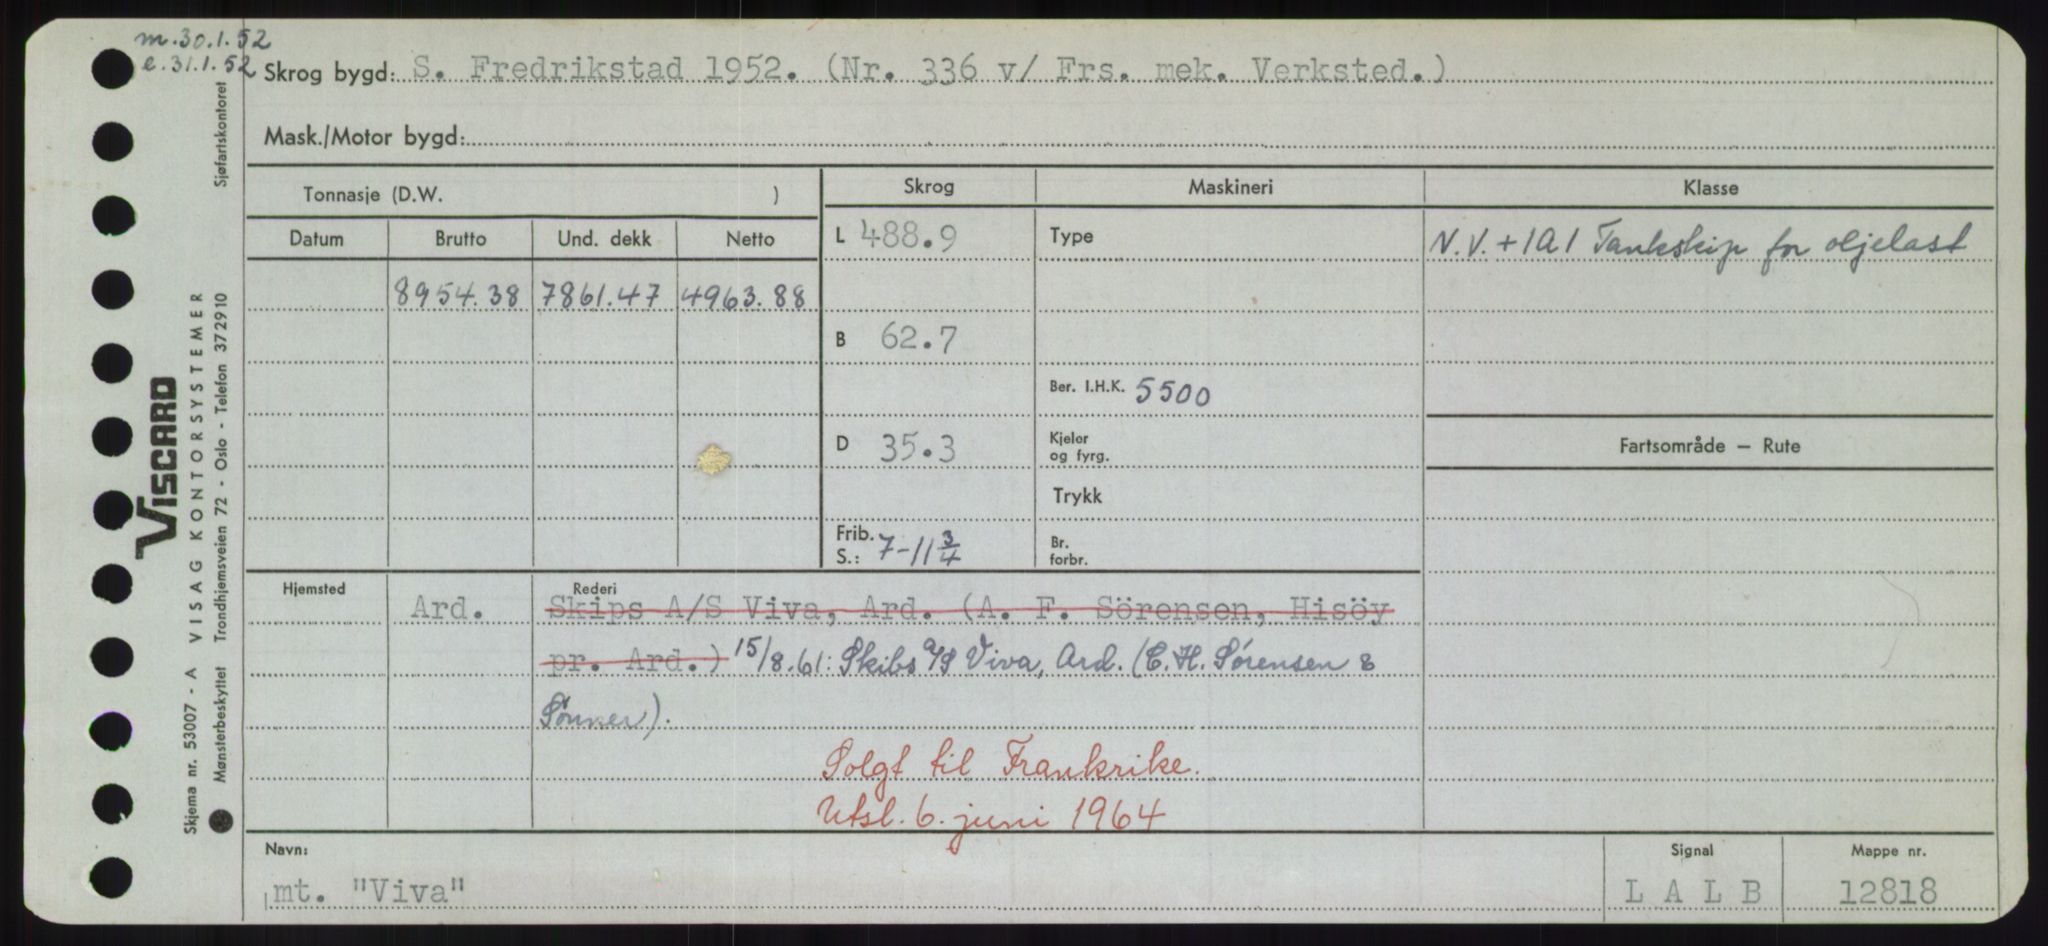 m. 30.1.52
e. 31.1.52
Skrog bygd: S. Fredrikstad 1952. (Nr. 336 v/ Frs. mek. Verksted.)
Mask./Motor bygd:
Tonnasje (D.W. )
Skrog
Maskineri
Klasse
Datum
Brutto
Und. dekk
Netto
L 488.9
Type
N.V. + 1A1 Tankskip for oljelast
8954.38 7861.47 4963.88
B 62.7
Ber. I.H.K. 5500
D 35.3
Kjeler
og fyrg.
Fartsområde — Rute
Trykk
Frib.
S.: 7-11 3/4
Br.
forbr.
Hjemsted
Rederi
Ard.
Skips A/S Viva, Ard. (A. F. Sörensen, Hisöy
pr. Ard.) 15/8.61: Skibs A/S Viva, Ard. (C. H. Sørensen &
Sönner).
Solgt til Frankrike.
Utsl. 6. juni 1964
Navn:
mt. "Viva"
Signal
L A L B
Mappe nr.
12818
VISCARD
Skjema nr. 53007 - A VISAG KONTORSYSTEMER
Mønsterbeskyttet Trondhjemsveien 72 - Oslo - Telefon 372910 Sjøfartskontoret